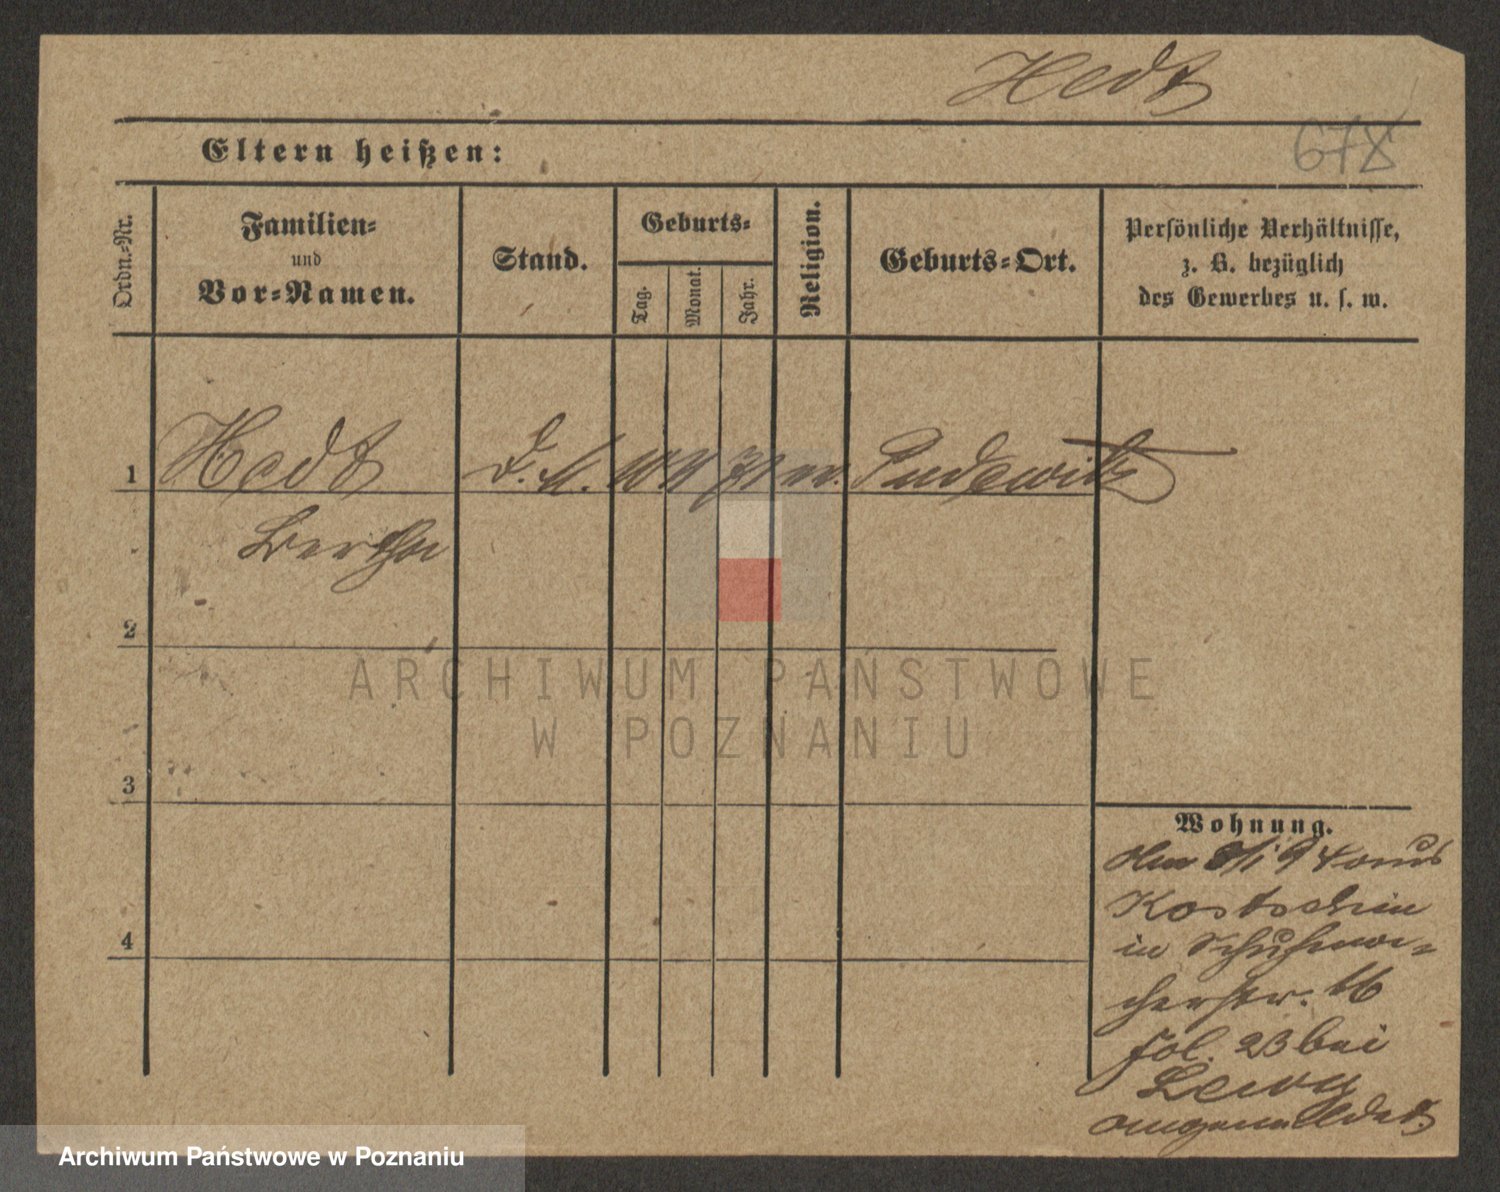 Hedt
678
Eltern heißen:
Ordn.-Nr.
Familien-
und
Vor-Namen.
Stand.
Geburts-
Tag.
Monat.
Jahr.
Religion.
Geburts-Ort.
Persönliche Verhältnisse,
z. B. bezüglich
des Gewerbes u. s. w.
1 Hedt D. M. 10 71 ev. Pudewitz
Bertha
2
3
4
Wohnung.
Am 8/1 94 aus
Kostschin
in Schuhma-
cherstr. 16
fol. 23 bei
Lewy
angemeldet.
ARCHIWUM PAŃSTWOWE
W POZNANIU
Archiwum Państwowe w Poznaniu